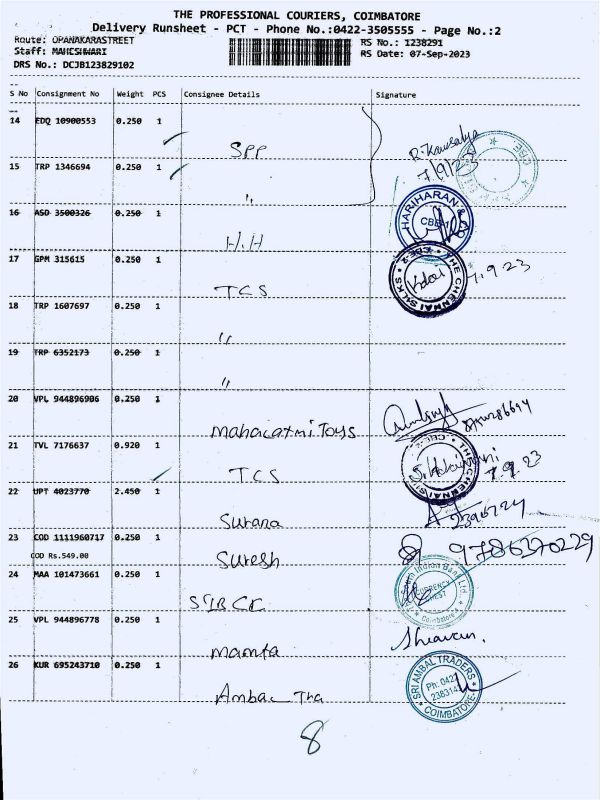 THE PROFESSIONAL COURIERS, COIMBATORE
Delivery Runsheet - PCT - Phone No.:0422-3505555 - Page No.:2
Route: OPANAKARASTREET RS No.: 1238291
Staff: MAHESHWARI RS Date: 07-Sep-2023
DRS No.: DCJB123829102
S No Consignment No Weight PCS Consignee Details Signature
14 EDQ 10900553 0.250 1
SPP R.Kousalya
7/9/23
15 TRP 1346694 0.250 1
"
16 ASD 3500326 0.250 1 HARIHARAN &
H.H CBE-1
17 GPM 315615 0.250 1 THE CHENNAI SILKS CBE-1
TCS 7.9.23
18 TRP 1607697 0.250 1
"
19 TRP 6352173 0.250 1
"
20 VPL 944896906 0.250 1
Mahalaxmi Toys
21 TVL 7176637 0.920 1 THE CHENNAI SILKS
TCS 7.9.23
22 UPT 4023770 2.450 1
Surana
23 COD 1111960717 0.250 1 9786370229
COD Rs.549.00 Suresh
24 MAA 101473661 0.250 1 South Indian Bank Ltd
CURRENCY CHEST
SIBCC Coimbatore
25 VPL 944896778 0.250 1 Shravan.
Mamta
26 KUR 695243710 0.250 1 SRI AMBAL TRADERS
Ph: 0422
COIMBATORE
Ambal Tra
8